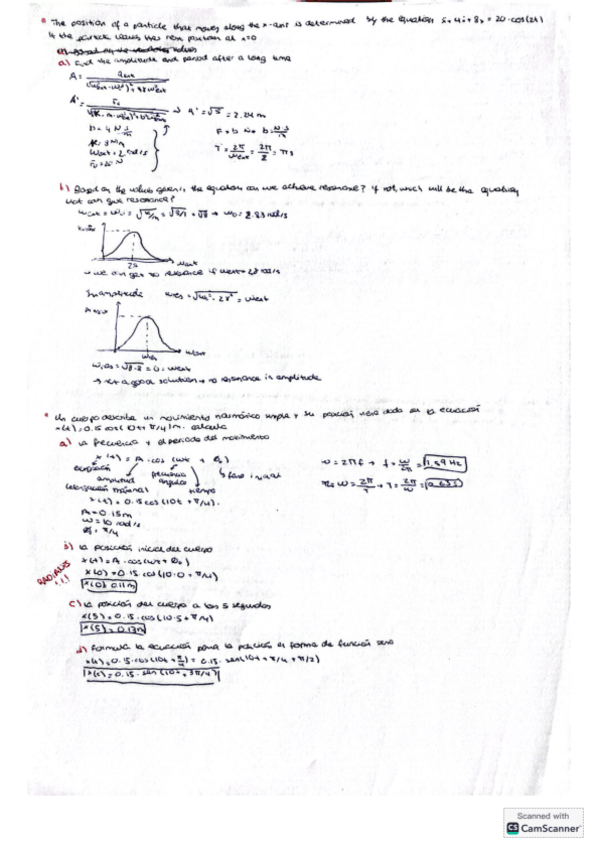 • The position of a particle that moves along the x-axis is determined by the equation ẍ + 4ẋ + 8x = 20·cos(2t)
If the particle leaves the rest position at x=0
a) Find the amplitude and period after a long time
A =
A' = → A' = √5 = 2.24 m
b = 4 N·s/m
F = b·v → b = N·s/m
Went = 2 rad/s
T = 2π/Went = 2π/2 = π s
F₀ = 20 N
b) Based on the values given in the equation can we achieve resonance? If not which will be the equation
that can give resonance?
Went = W₀ = √k/m = √8/1 = √8 → W₀ = 2.83 rad/s
Went
→ we can get to resonance if Went = 2.8 rad/s
In amplitude Wres = √W₀² - 2γ² = Went
Went
Wres
Wres = √8-8 = 0 = Went
→ not a good solution → no resonance in amplitude
• Un cuerpo describe un movimiento harmónico simple y su posición viene dada por la ecuación
x(t) = 0.15 cos(10t + π/4) m. calcula
a) la frecuencia y el periodo del movimiento
x(t) = A·cos(ωt + φ₀)
ω = 2πf → f = ω/2π = 1.59 Hz
elongación
amplitud
frecuencia
angular
fase inicial
(elongación máxima)
tiempo
ω = 2π/T → T = 2π/ω = 0.63 s
x(t) = 0.15 cos(10t + π/4).
A = 0.15 m
ω = 10 rad/s
φ₀ = π/4
b) la posición inicial del cuerpo
x(t) = A·cos(ωt + φ₀)
RADIANES
!!!
x(0) = 0.15·cos(10·0 + π/4)
x(0) = 0.11 m
c) la posición del cuerpo a los 5 segundos
x(5) = 0.15·cos(10·5 + π/4)
x(5) = 0.13 m
d) Formula la ecuación para la posición en forma de función seno
x(t) = 0.15·cos(10t + π/4) = 0.15·sen(10t + π/4 + π/2)
x(t) = 0.15·sen(10t + 3π/4)
Scanned with
CS CamScanner